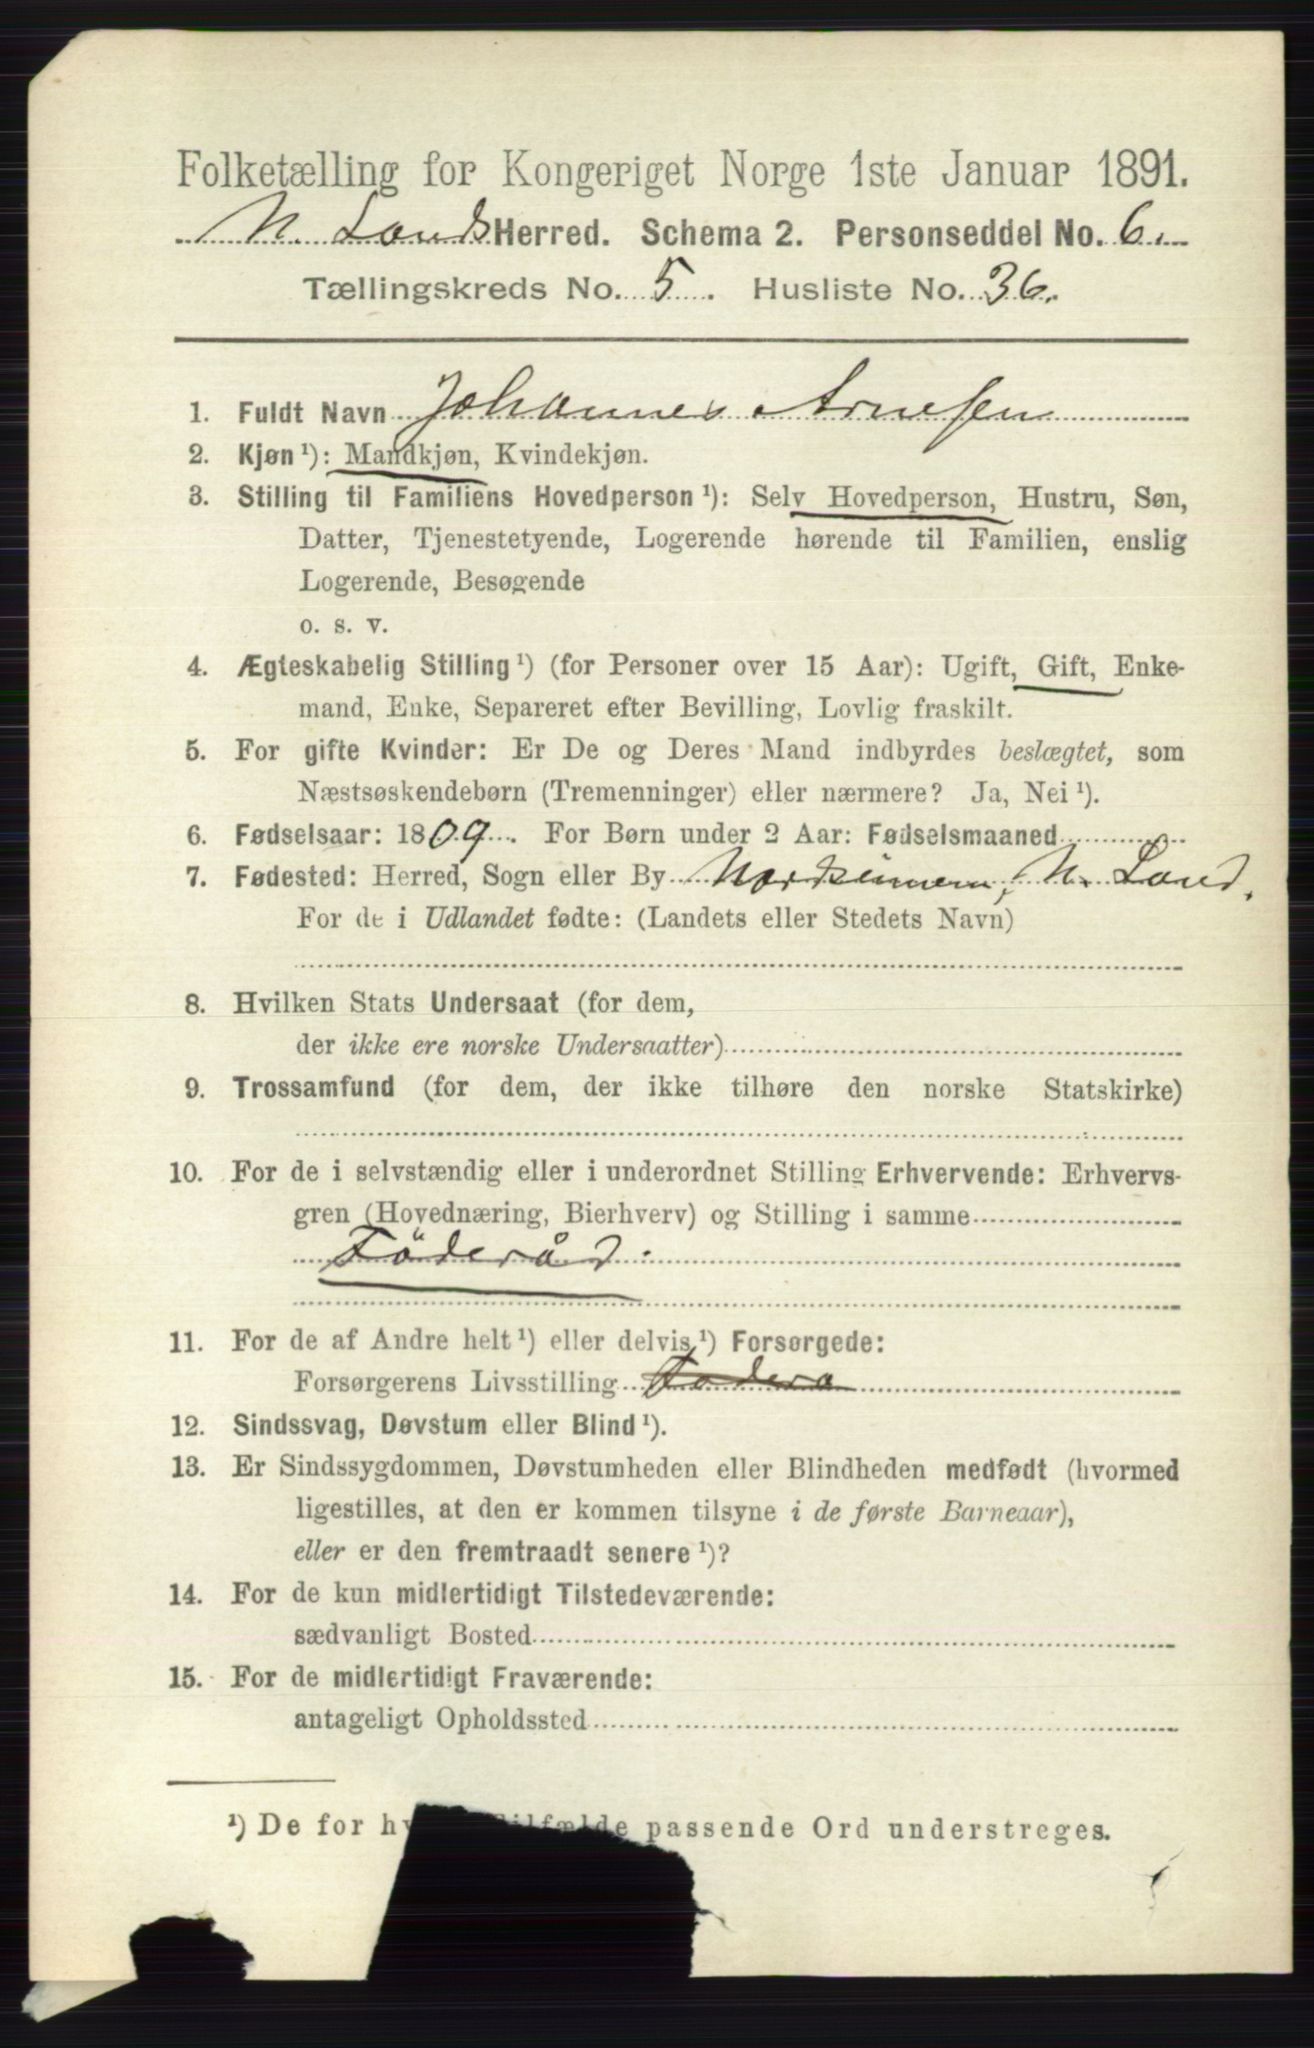 Folketælling for Kongeriget Norge 1ste Januar 1891.
N. Lands Herred. Schema 2. Personseddel No. 6.
Tællingskreds No. 5. Husliste No. 36.
1. Fuldt Navn Johannes Arnesen
2. Kjøn¹): Mandkjøn, Kvindekjøn.
3. Stilling til Familiens Hovedperson¹): Selv Hovedperson, Hustru, Søn,
Datter, Tjenestetyende, Logerende hørende til Familien, enslig
Logerende, Besøgende
o. s. v.
4. Ægteskabelig Stilling¹) (for Personer over 15 Aar): Ugift, Gift, Enke-
mand, Enke, Separeret efter Bevilling, Lovlig fraskilt.
5. For gifte Kvinder: Er De og Deres Mand indbyrdes beslægtet, som
Næstsøskendebørn (Tremenninger) eller nærmere? Ja, Nei¹).
6. Fødselsaar: 1809. For Børn under 2 Aar: Fødselsmaaned
7. Fødested: Herred, Sogn eller By N. Land.
For de i Udlandet fødte: (Landets eller Stedets Navn)
8. Hvilken Stats Undersaat (for dem,
der ikke ere norske Undersaatter)
9. Trossamfund (for dem, der ikke tilhøre den norske Statskirke)
10. For de i selvstændig eller i underordnet Stilling Erhvervende: Erhvervs-
gren (Hovednæring, Bierhverv) og Stilling i samme
Föderåd.
11. For de af Andre helt¹) eller delvis¹) Forsørgede:
Forsørgerens Livsstilling Födera
12. Sindssvag, Døvstum eller Blind¹).
13. Er Sindssygdommen, Døvstumheden eller Blindheden medfødt (hvormed
ligestilles, at den er kommen tilsyne i de første Barneaar),
eller er den fremtraadt senere¹)?
14. For de kun midlertidigt Tilstedeværende:
sædvanligt Bosted
15. For de midlertidigt Fraværende:
antageligt Opholdssted
¹) De for hv Tilfælde passende Ord understreges.